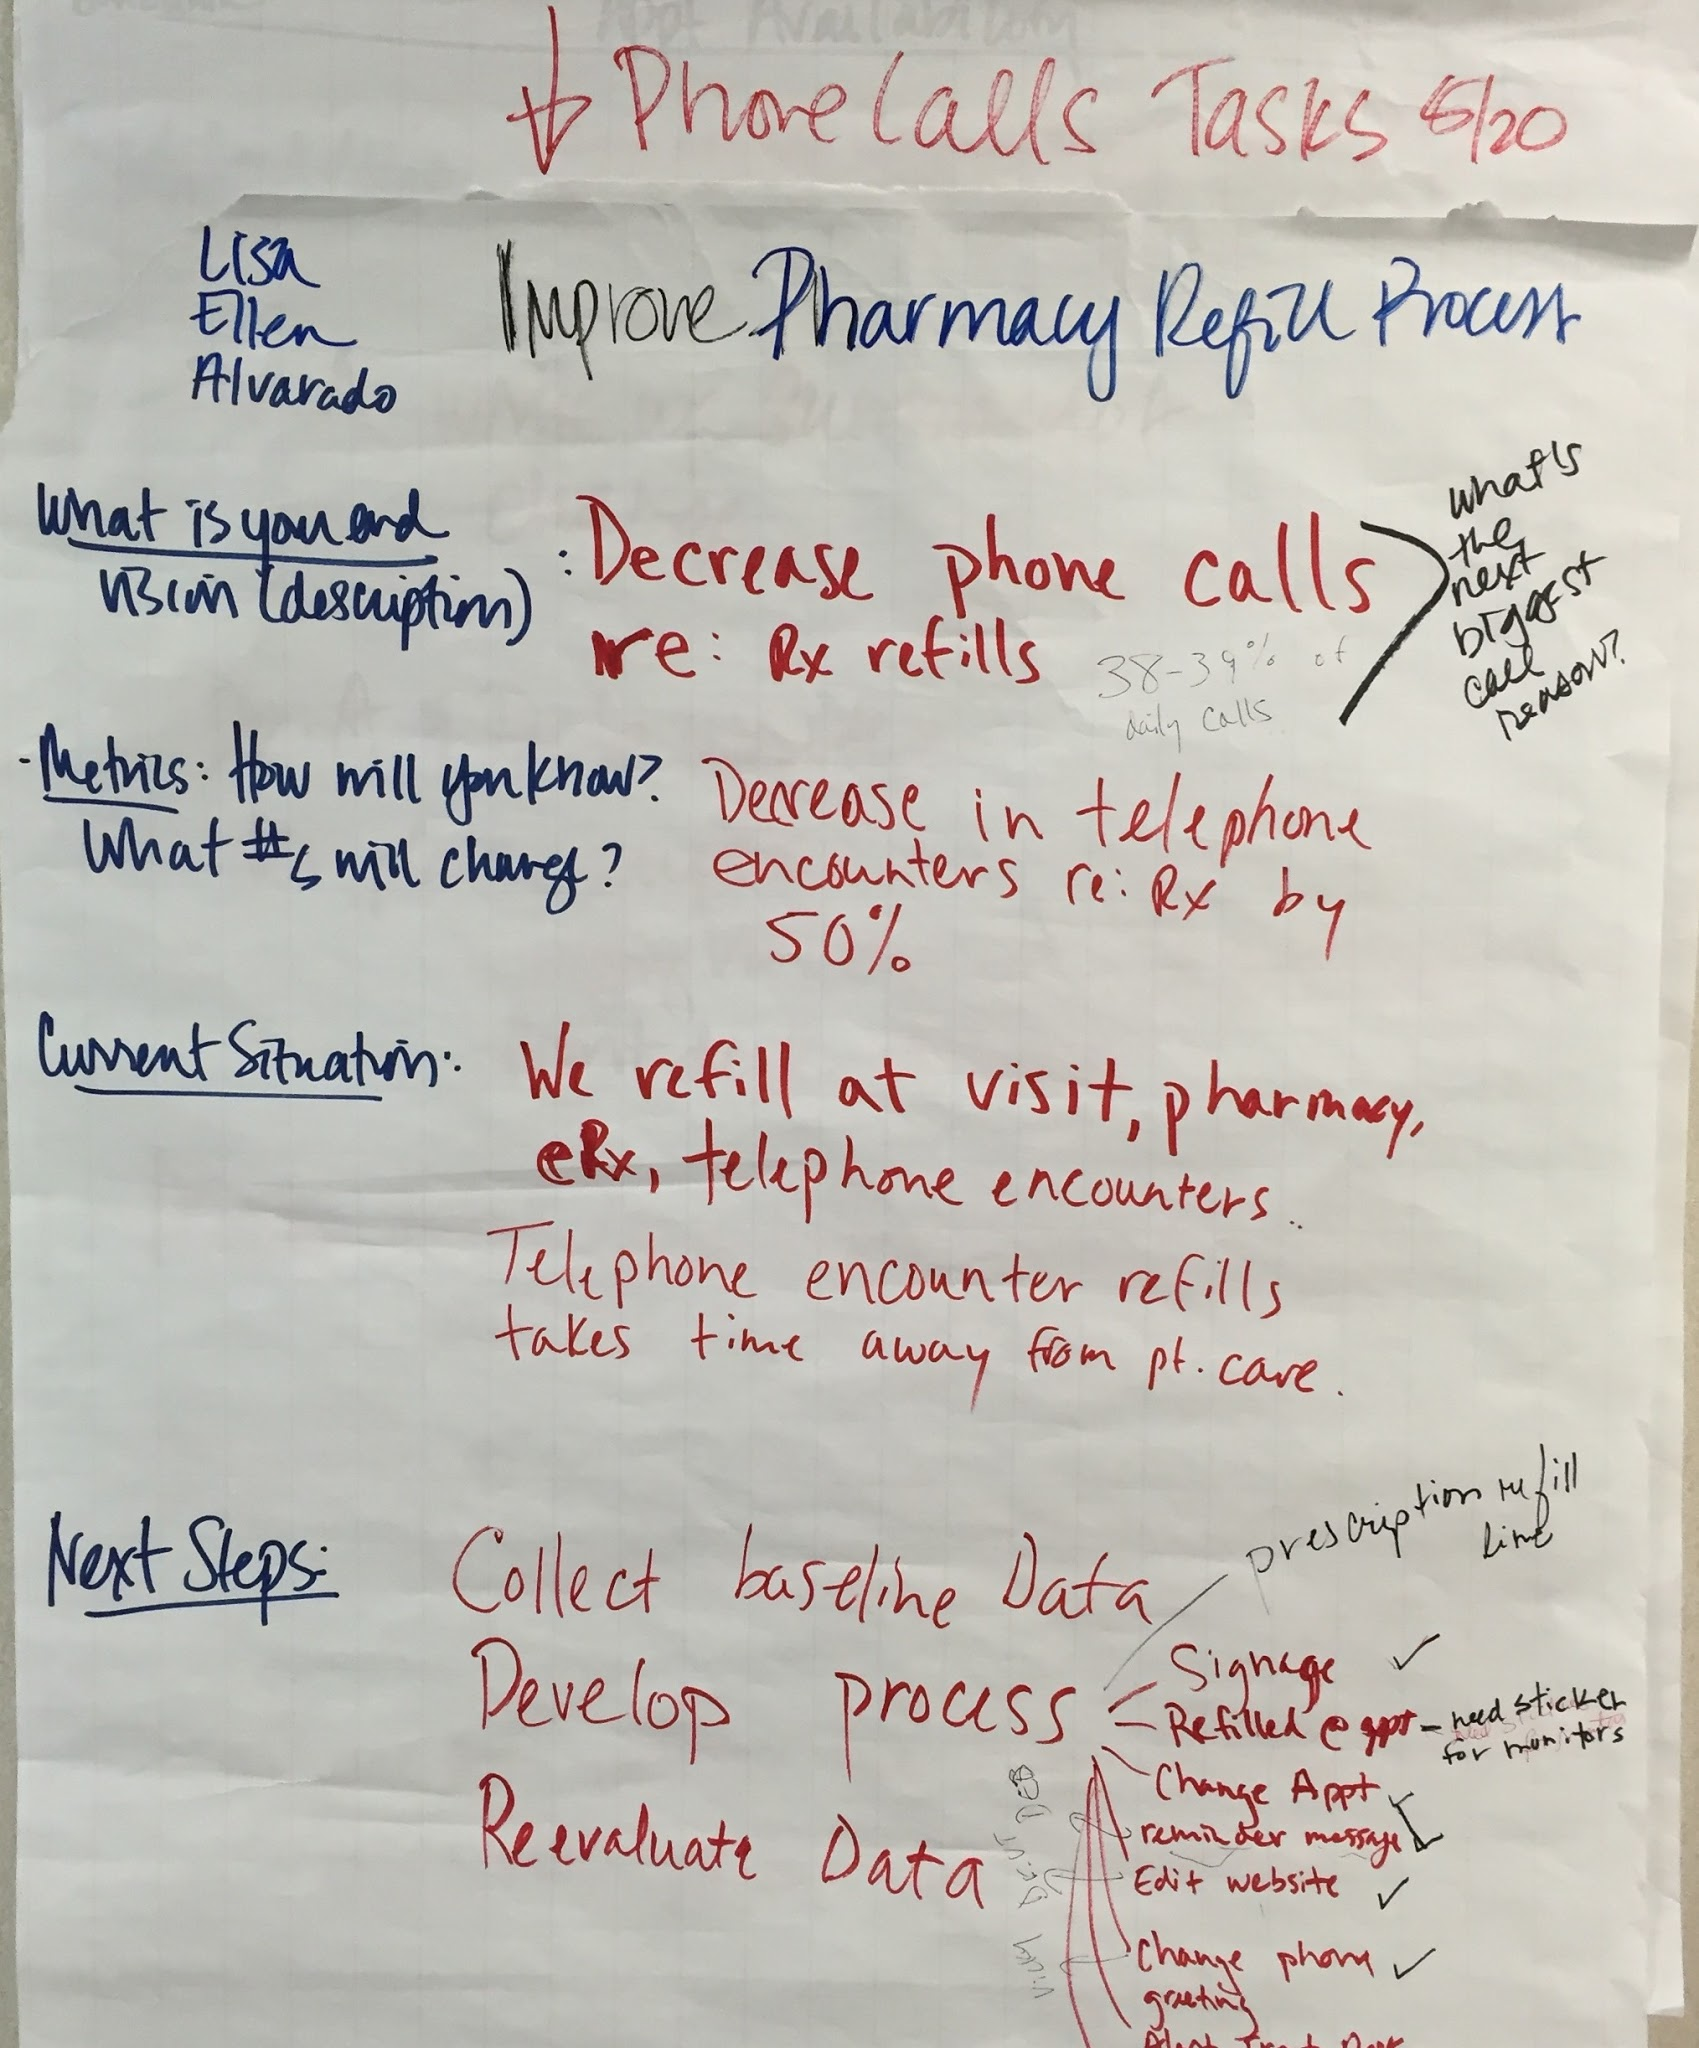 Appt Availability
↓ Phone Calls Tasks 5/20
Lisa
Ellen
Alvarado
Improve Pharmacy Refill Process
What is you end
vision (description)
: Decrease phone calls
re: Rx refills
38-39% of
daily calls
what's
the
next
biggest
call
reason?
- Metrics: How will you know?
What #s will change?
Decrease in telephone
encounters re: Rx by
50%
Current Situation:
We refill at visit, pharmacy,
eRx, telephone encounters.
Telephone encounter refills
takes time away from pt. care.
Next Steps:
Collect baseline Data
Develop process
Reevaluate Data
prescription refill
line
Signage ✓
Refilled @ appt - need sticker
for monitors
Change Appt
reminder message ✓
Edit website ✓
Change phone ✓
greeting
Alert Front Desk
Vicky